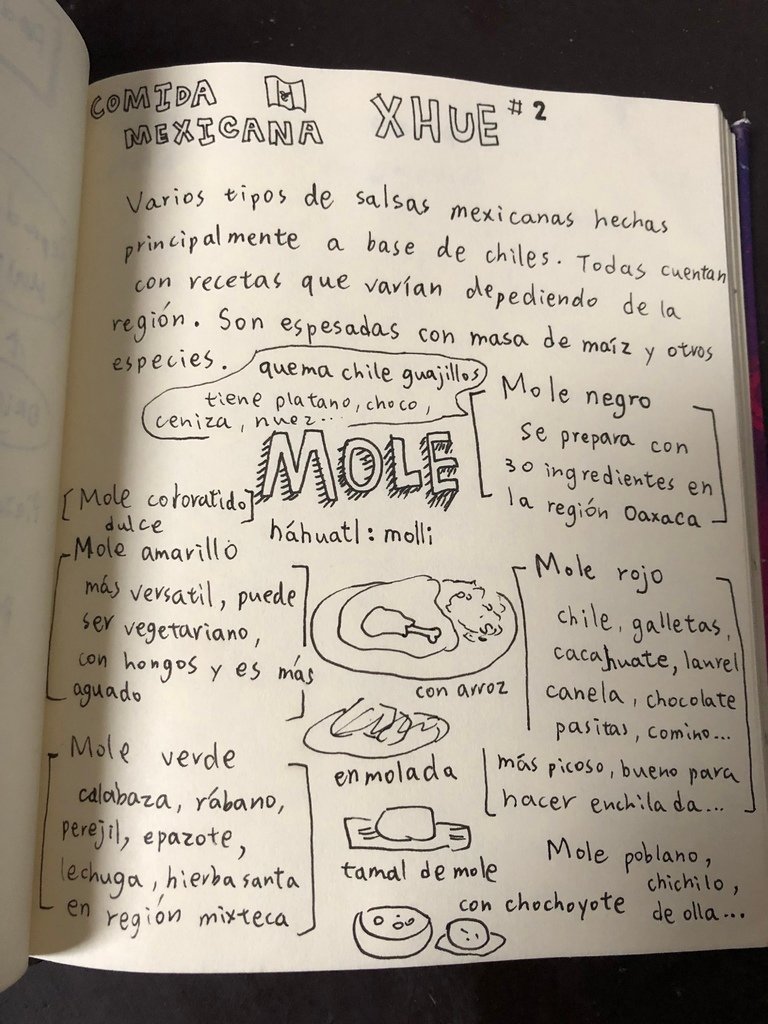 COMIDA
MEXICANA
XHUE #2
Varios tipos de salsas mexicanas hechas
principalmente a base de chiles. Todas cuentan
con recetas que varían depediendo de la
región. Son espesadas con masa de maíz y otros
especies.
quema chile guajillos
tiene platano, choco,
ceniza, nuez...
Mole negro
se prepara con
30 ingredientes en
la región Oaxaca
MOLE
háhuatl: molli
[Mole cotoratido]
dulce
Mole amarillo
más versatil, puede
ser vegetariano,
con hongos y es más
aguado
Mole rojo
chile, galletas,
cacahuate, laurel
canela, chocolate
pasitas, comino...
más picoso, bueno para
hacer enchilada...
con arroz
enmolada
tamal de mole
con chochoyote
Mole verde
calabaza, rábano,
perejil, epazote,
lechuga, hierba santa
en región mixteca
Mole poblano,
chichilo,
de olla...